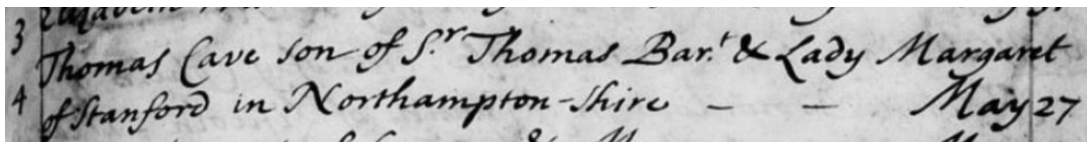 3
Thomas Cave son of S.r Thomas Bar.t & Lady Margaret
4 of Stanford in Northampton-shire — — May 27